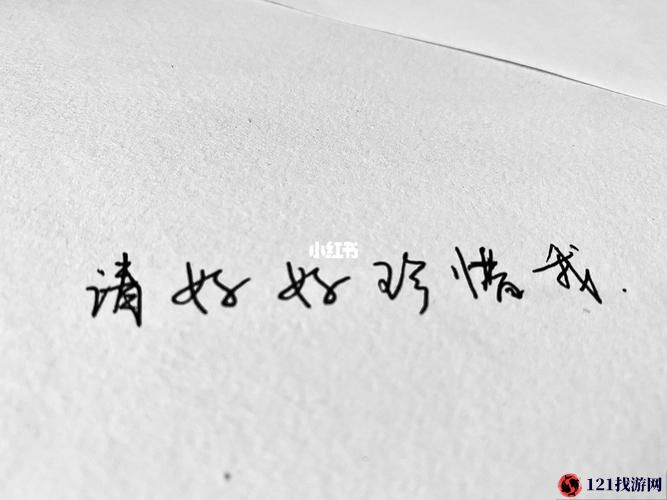 小红书
请好好珍惜我.
121找游网